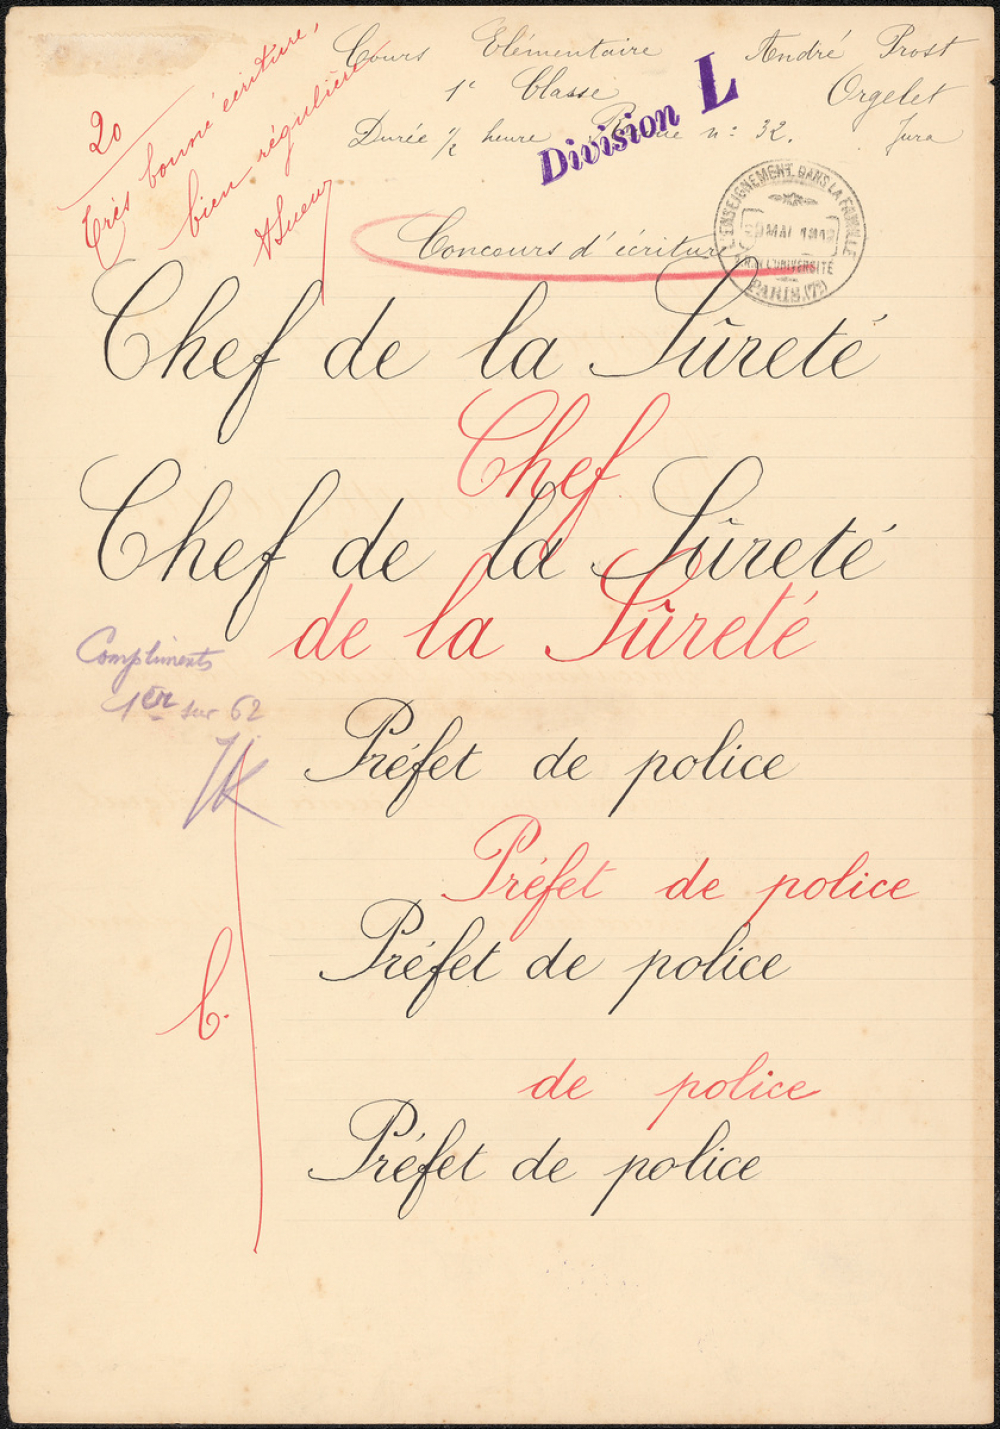 Cours Elémentaire André Prost
1e Classe Orgelet
Durée 1/2 heure n: 32. Jura
Division L
20
Très bonne écriture,
bien régulière
L'ENSEIGNEMENT DANS LA FAMILLE
MAI
L'UNIVERSITÉ
PARIS (7e)
Concours d'écriture
Chef de la Sûreté
Chef
Chef de la Sûreté
de la Sûreté
Compliments
1er sur 62
Préfet de police
Préfet de police
Préfet de police
b.
de police
Préfet de police